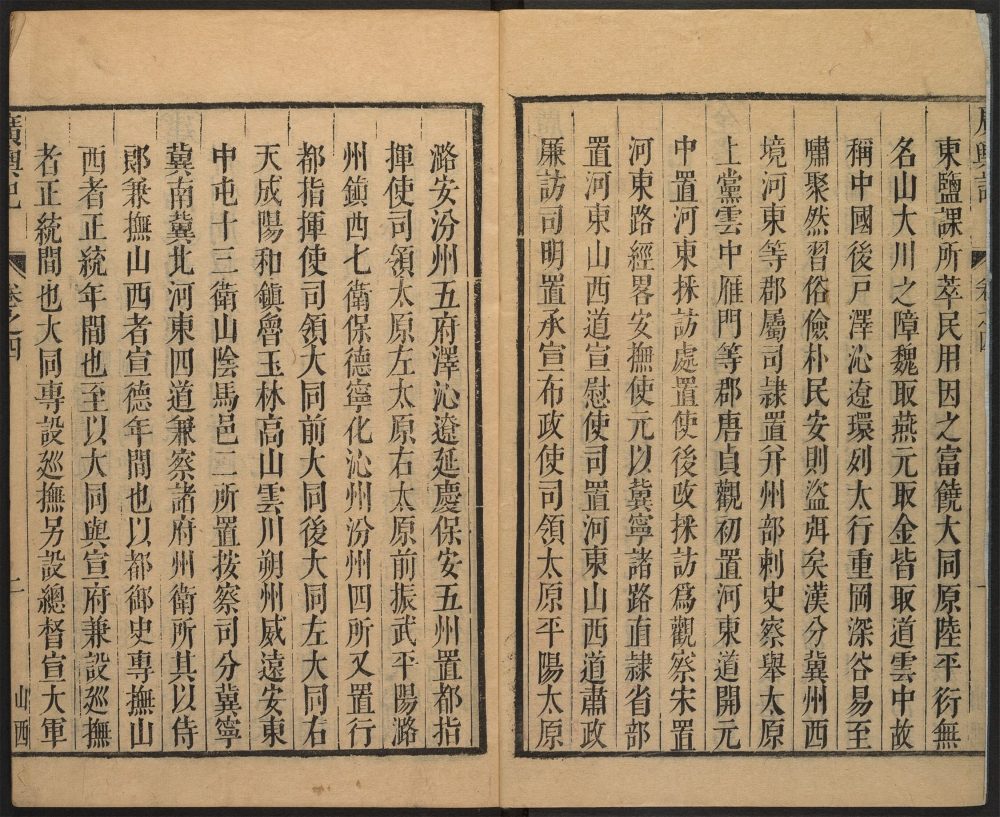 廣輿記
卷之四
東鹽課所萃民用因之富饒大同原陸平衍無
名山大川之障魏取燕元取金皆取道雲中故
稱中國後戸澤沁遼環列太行重岡深谷易至
嘯聚然習俗儉朴民安則盜弭矣漢分冀州西
境河東等郡屬司隷置幷州部刺史察舉太原
上黨雲中雁門等郡唐貞觀初置河東道開元
中置河東採訪處置使後改採訪爲觀察宋置
河東路經畧安撫使元以冀寧諸路直隷省部
置河東山西道宣慰使司置河東山西道肅政
廉訪司明置承宣布政使司領太原平陽太原
潞安汾州五府澤沁遼延慶保安五州置都指
揮使司領太原左太原右太原前振武平陽潞
州鎮西七衛保德寧化沁州汾州四所又置行
都指揮使司領大同前大同後大同左大同右
天成陽和鎮魯玉林高山雲川朔州威遠安東
中屯十三衛山陰馬邑二所置按察司分冀寧
冀南冀北河東四道兼察諸府州衛所其以侍
郎兼撫山西者宣德年間也以都御史專撫山
西者正統年間也至以大同與宣府兼設廵撫
者正統間也大同專設廵撫另設總督宣大軍
廣輿記
卷之四
二
山西